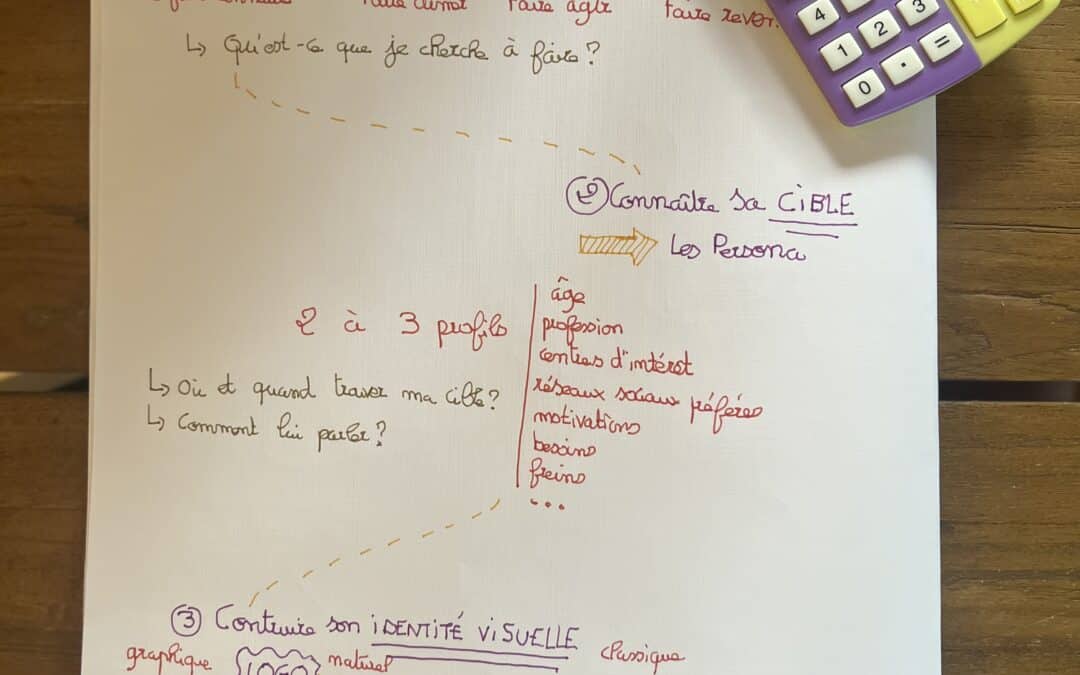 faire aimer faire agir faire rêver.
↳ Qu'est-ce que je cherche à faire ?
② Connaître sa CIBLE
Les Persona
2 à 3 profils
âge
profession
centres d'intérêt
réseaux sociaux préférés
motivations
besoins
freins
...
↳ Où et quand trouver ma cible ?
↳ Comment lui parler ?
③ Construire son iDENTITÉ ViSUELLE
graphique LOGO naturel classique
4 2 3
1 = 
0 .